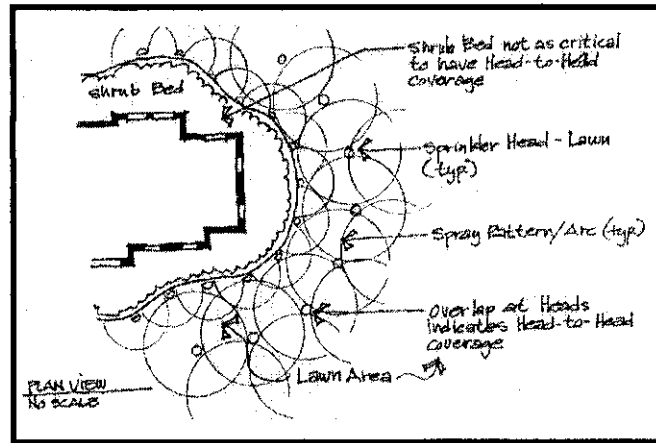 Shrub Bed not as critical
to have Head-to-Head
coverage
Shrub Bed
Sprinkler Head - Lawn
(typ)
Spray Pattern/Arc (typ)
Overlap at Heads
indicates Head-to-Head
coverage
Lawn Area
PLAN VIEW
NO SCALE